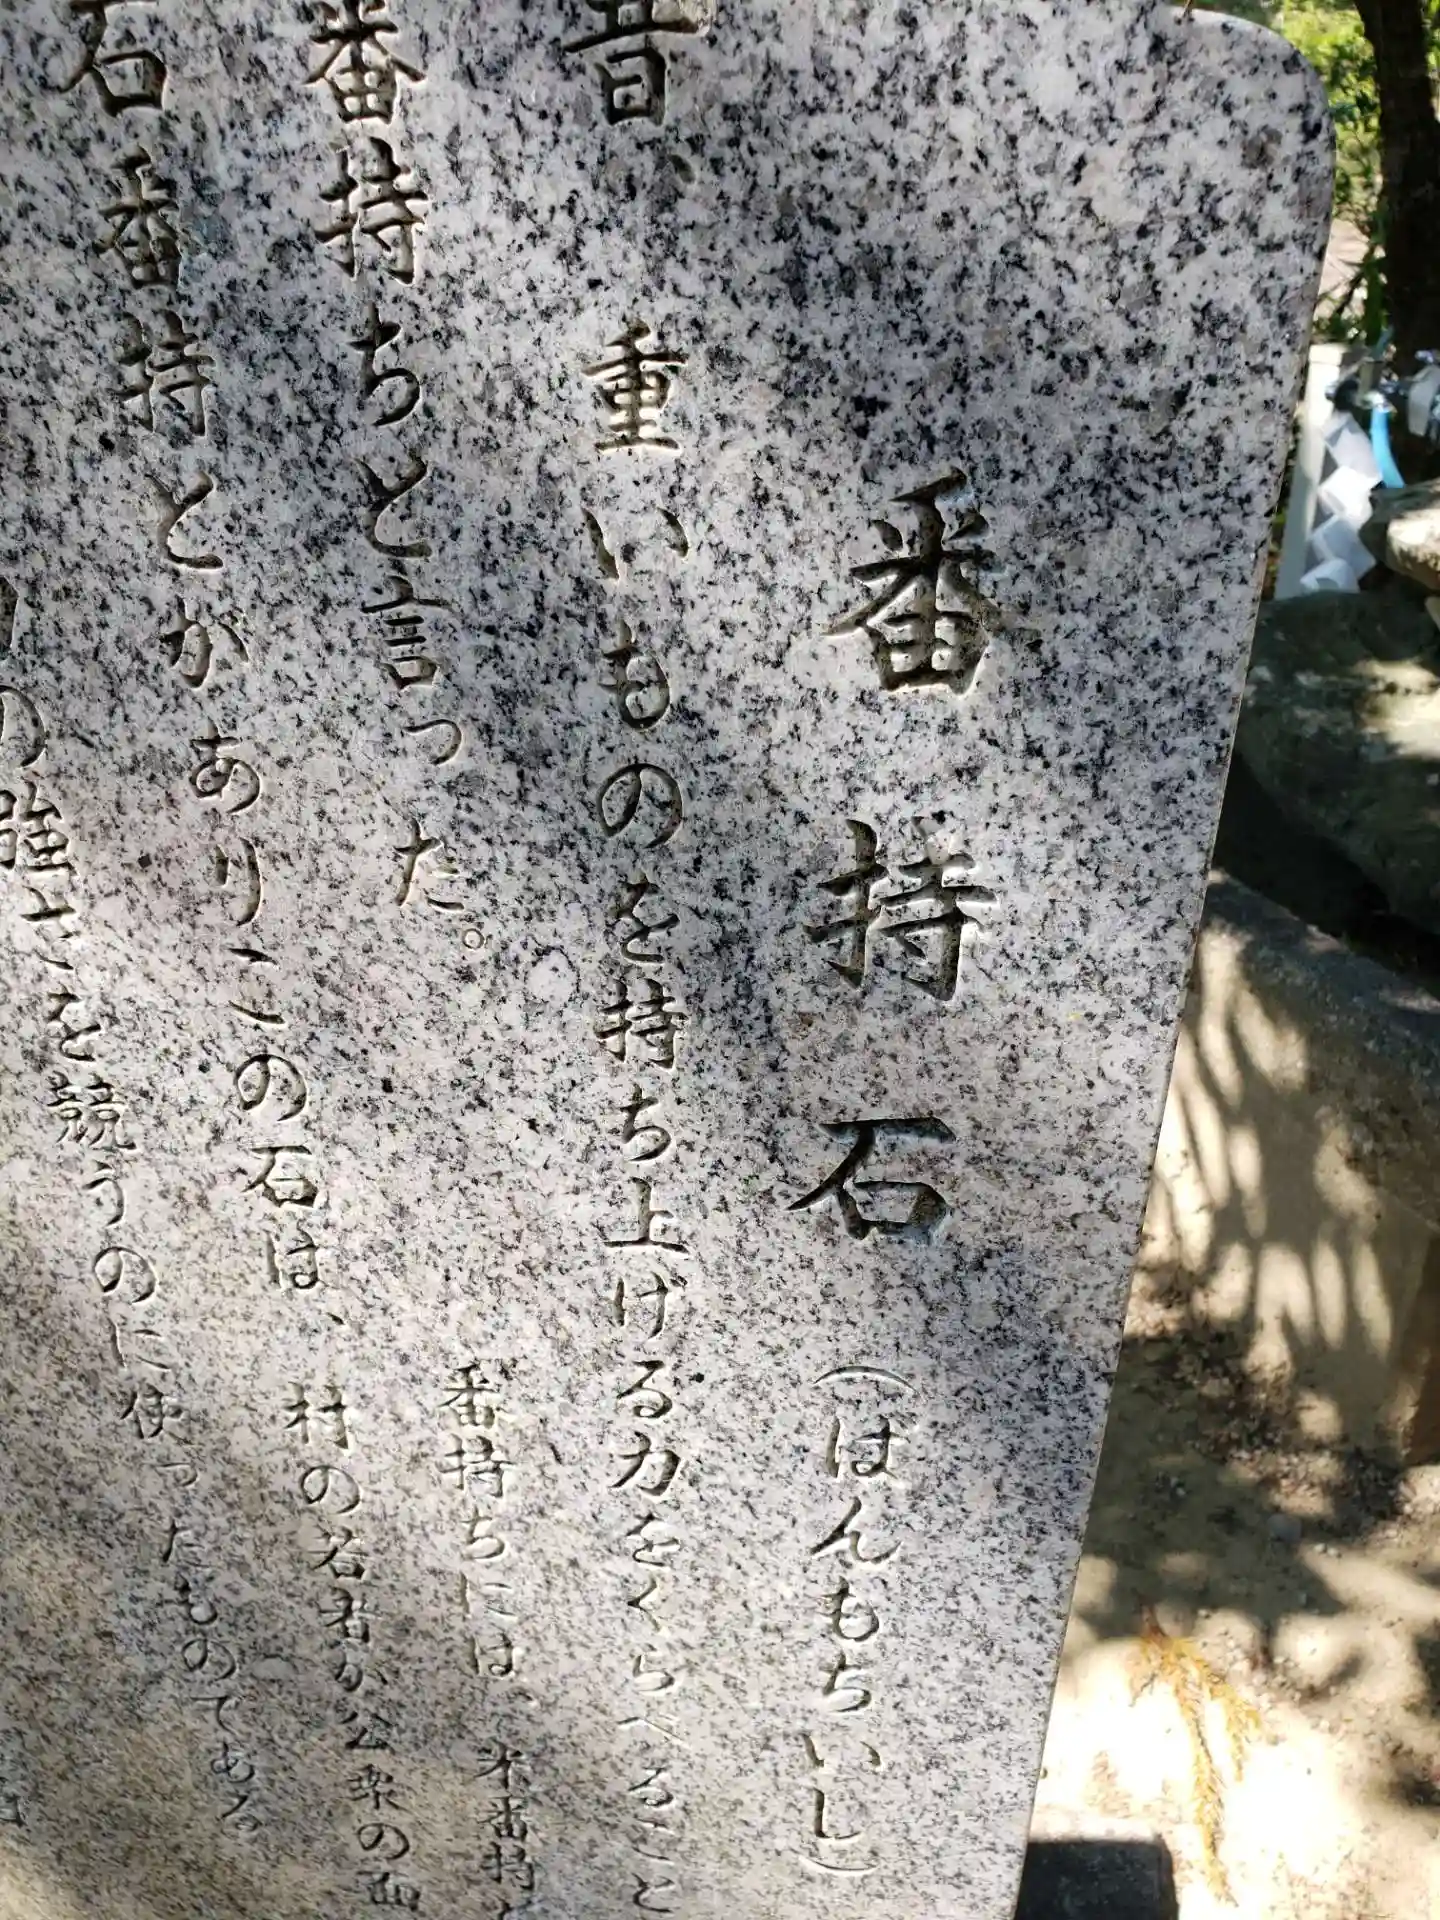 番持石(ばんもちいし)
昔、重いものを持ち上げる力をくらべること
番持ちと言った。 番持ちには、米番持と
石番持とがありこの石は、村の若者が公衆の面
の強さを競うのに使ったものである。